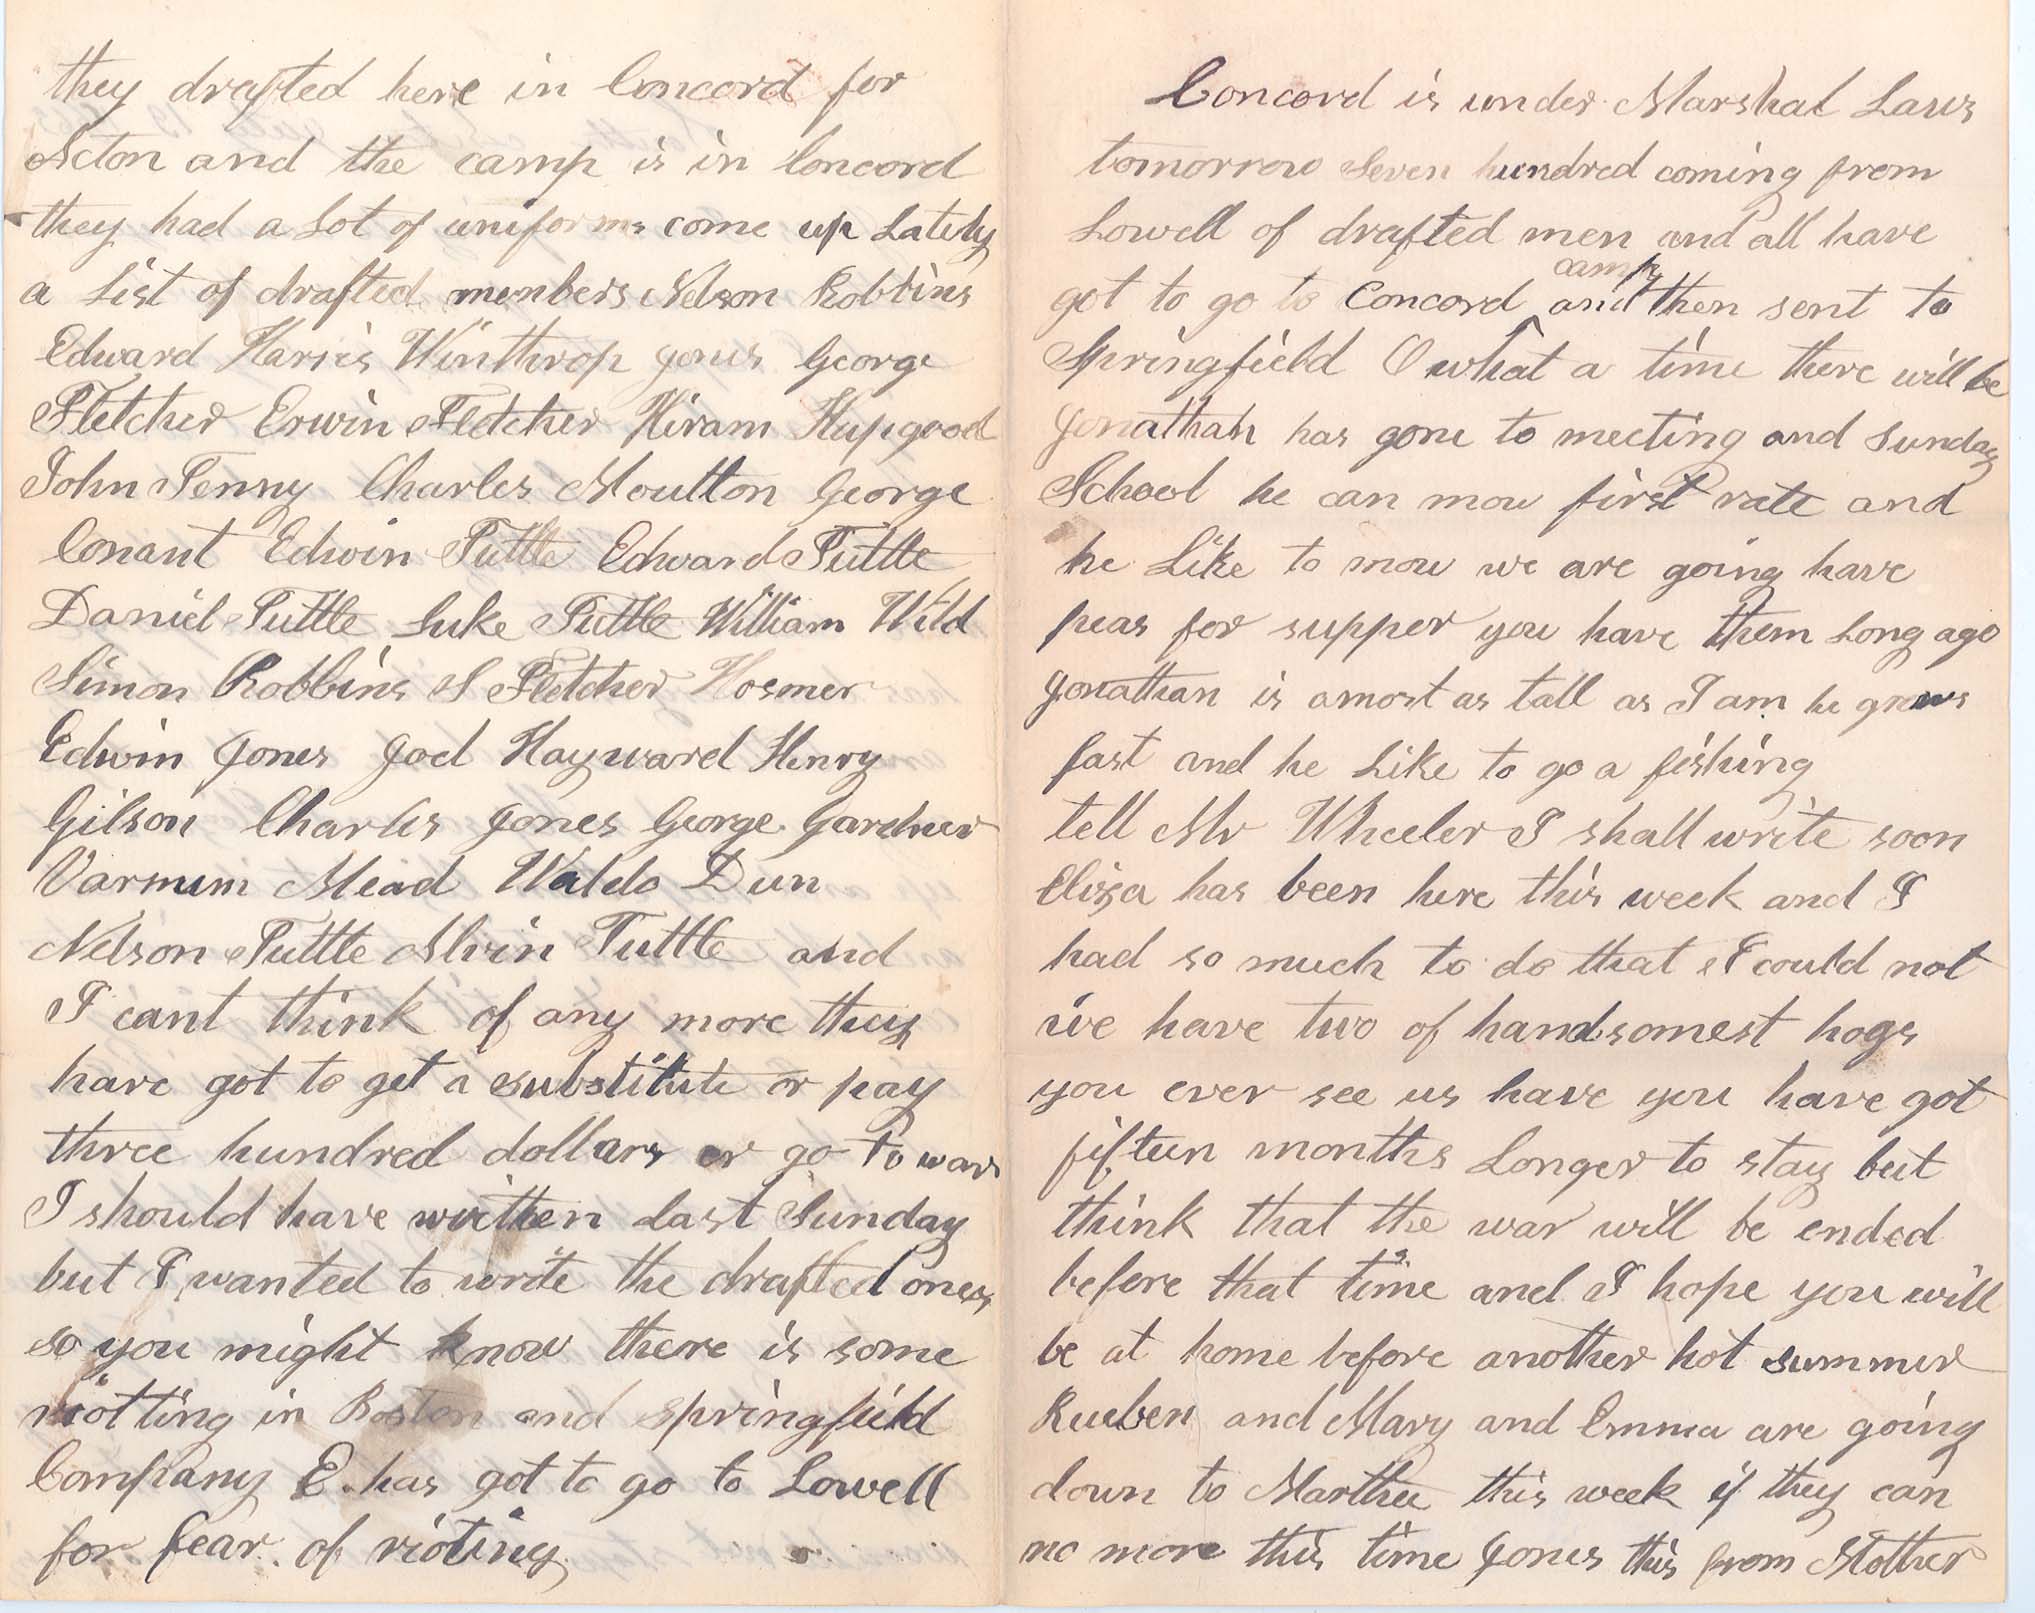 they drafted here in Concord for
Acton and the camp is in Concord
they had a Lot of uniforms come up Lately
a List of drafted members Nelson Robbins
Edward Harris Winthrop Jones George
Fletcher Erwin Fletcher Hiram Hupgood
John Fenny Charles Moulton George
Conant Edwin Tuttle Edward Tuttle
Daniel Tuttle Luke Tuttle William Wild
Simon Robbins S Fletcher Hosmer
Edwin Jones Joel Hayward Henry
Gilson Charles Jones George Gardner
Varnum Mead Waldo Dun
Nelson Tuttle Alvin Tuttle and
I cant think of any more they
have got to get a substitute or pay
three hundred dollars or go to war
I should have written Last Sunday
but I wanted to write the drafted ones
so you might know there is some
riotting in Boston and Springfield
Company E. has got to go to Lowell
for fear of rioting
Concord is under Marshal Laws
tomorrow Seven hundred coming from
Lowell of drafted men and all have
got to go to Concord camp and then sent to
Springfield O what a time there will be
Jonathan has gone to meeting and Sunday
School he can mow first rate and
he Like to mow we are going have
peas for supper you have them Long ago
Jonathan is amost as tall as I am he grows
fast and he Like to go a fishing
tell Mr Wheeler I shall write soon
Eliza has been here this week and I
had so much to do that I could not
we have two of handsomest hogs
you ever see us have you have got
fifteen months Longer to stay but
think that the war will be ended
before that time and I hope you will
be at home before another hot summer
Rueben and Mary and Emma are going
down to Marthee this week if they can
no more this time Jones this from Mother